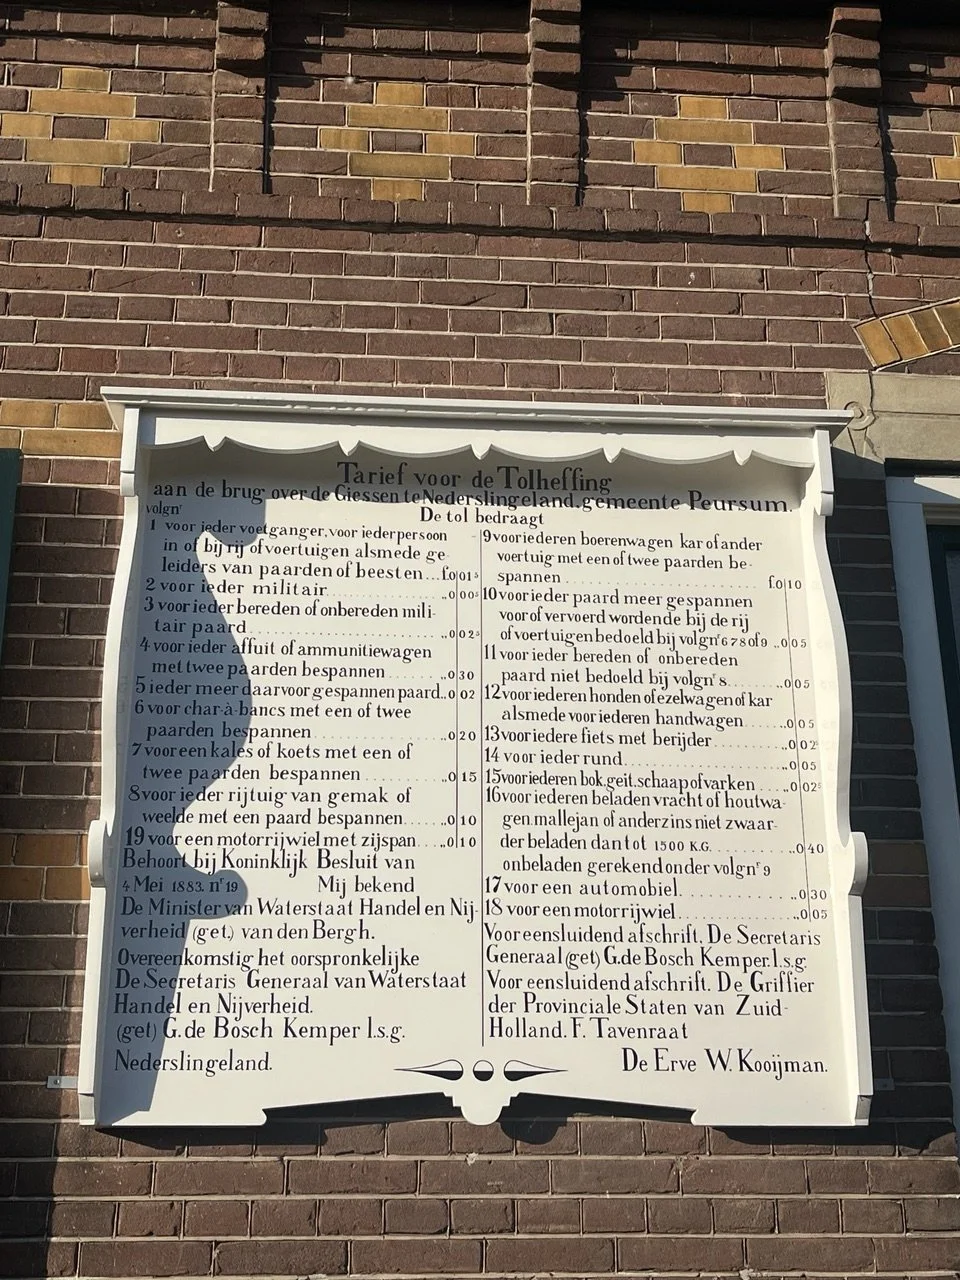 Tarief voor de Tolheffing
aan de brug over de Giessen te Nederslingeland. gemeente Peursum.
De tol bedraagt
volgnr
1 voor ieder voetganger, voor ieder persoon
in of bij rij of voertuigen alsmede ge
leiders van paarden of beesten... f.0|01⁵
2 voor ieder militair......0|00⁵
3 voor ieder bereden of onbereden mili-
tair paard......0|02⁵
4 voor ieder affuit of ammunitiewagen
met twee paarden bespannen......0|30
5 ieder meer daarvoor gespannen paard..0|02
6 voor char-à-bancs met een of twee
paarden bespannen......0|20
7 voor een kales of koets met een of
twee paarden bespannen......0|15
8 voor ieder rijtuig van gemak of
weelde met een paard bespannen.....0|10
19 voor een motorrijwiel met zijspan....0|10
Behoort bij Koninklijk Besluit van
4 Mei 1883. nr 19 Mij bekend
De Minister van Waterstaat Handel en Nij-
verheid (get.) van den Bergh.
Overeenkomstig het oorspronkelijke
De Secretaris Generaal van Waterstaat
Handel en Nijverheid.
(get) G. de Bosch Kemper l.s.g.
Nederslingeland.
9 voor iederen boerenwagen kar of ander
voertuig met een of twee paarden be-
spannen...... f.0|10
10 voor ieder paard meer gespannen
voor of vervoerd wordende bij de rij
of voertuigen bedoeld bij volgnr 6 7 8 of 9 ..0|05
11 voor ieder bereden of onbereden
paard niet bedoeld bij volgnr 8......0|05
12 voor iederen honden of ezelwagen of kar
alsmede voor iederen handwagen......0|05
13 voor iedere fiets met berijder......0|02⁵
14 voor ieder rund......0|05
15 voor iederen bok. geit. schaap of varken....0|02⁵
16 voor iederen beladen vracht of houtwa-
gen. mallejan of anderzins niet zwaar-
der beladen dan tot 1500 K.G......0|40
onbeladen gerekend onder volgnr 9
17 voor een automobiel......0|30
18 voor een motorrijwiel......0|05
Voor eensluidend afschrift. De Secretaris
Generaal (get) G. de Bosch Kemper. l.s.g.
Voor eensluidend afschrift. De Griffier
der Provinciale Staten van Zuid-
Holland. F. Tavenraat
De Erve W. Kooijman.